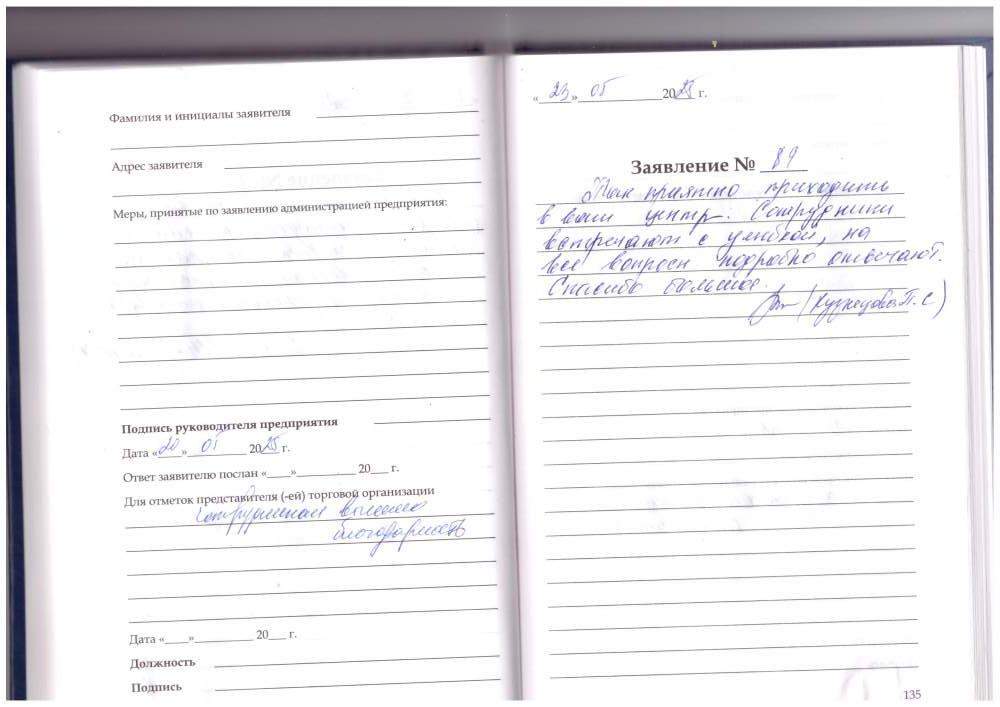 Фамилия и инициалы заявителя
Адрес заявителя
Меры, принятые по заявлению администрацией предприятия:
Подпись руководителя предприятия
Дата «20» 05 2025 г.
Ответ заявителю послан «____»__________ 20___ г.
Для отметок представителя (-ей) торговой организации
Сотрудникам вынесена
благодарность
Дата «____»__________ 20___ г.
Должность
Подпись
«23» 05 2025 г.
Заявление № 89
Так приятно приходить
в ваш центр. Сотрудники
встречают с улыбкой, на
все вопросы подробно отвечают.
Спасибо большое.
(Кузнецова Т. С.)
135